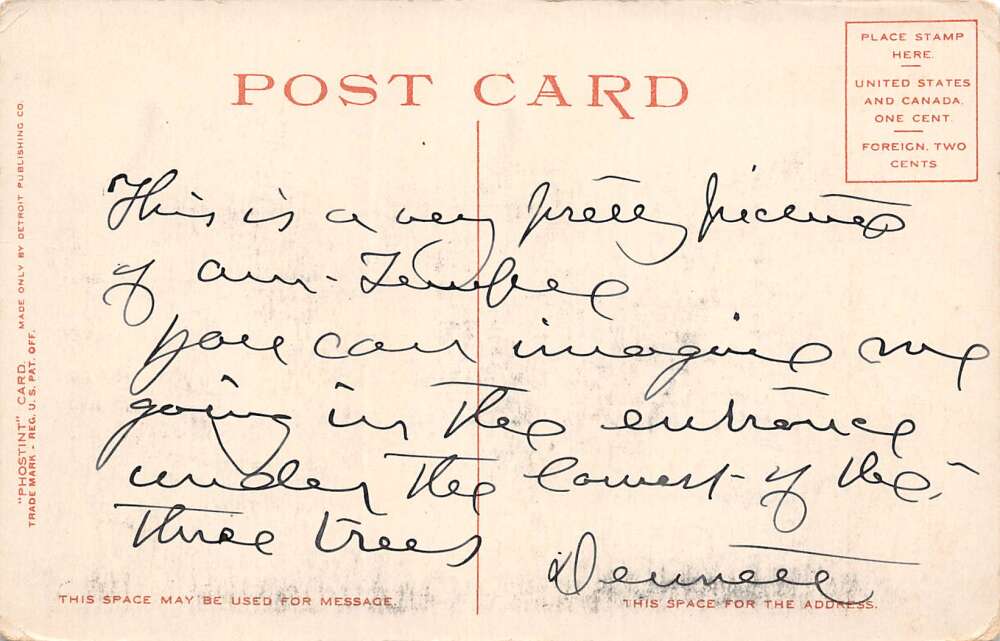 POST CARD
PLACE STAMP
HERE.
UNITED STATES
AND CANADA,
ONE CENT.
FOREIGN, TWO
CENTS
"PHOSTINT" CARD. MADE ONLY BY DETROIT PUBLISHING CO.
TRADE MARK - REG. U. S. PAT. OFF.
This is a very pretty picture
of our Temple
you can imagine me
going in the entrance
under the lowest of the
three trees
THIS SPACE MAY BE USED FOR MESSAGE.
THIS SPACE FOR THE ADDRESS.